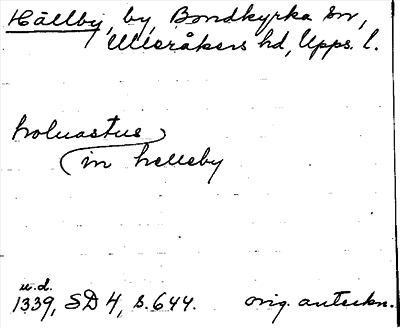 Hällby, by, Bondkyrka sn,
Ulleråkers hd, Upps. l.
holuastus
in helleby
u.d.
1339, SD 4, s. 644. orig. anteckn.